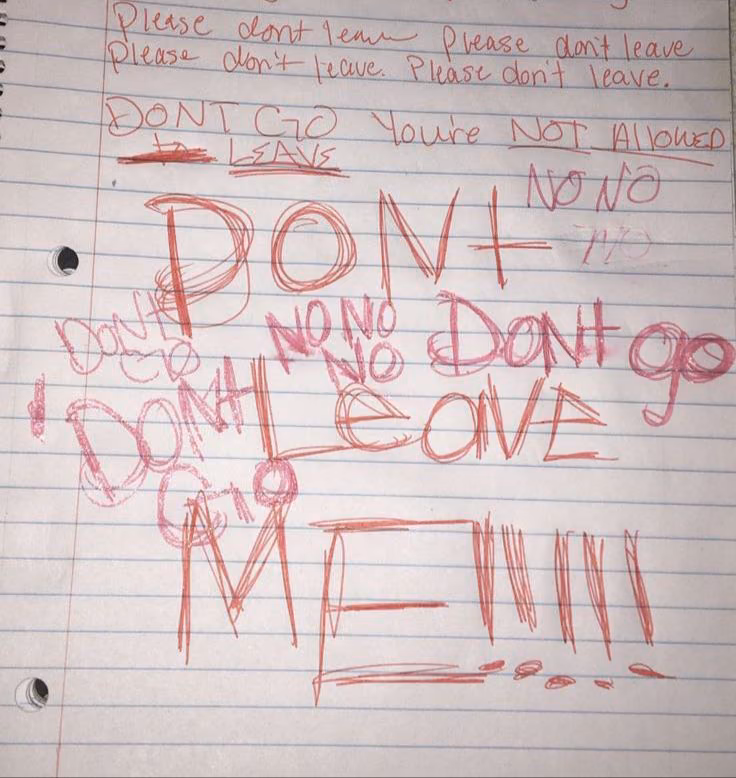 Please dont leave Please don't leave
Please don't leave. Please don't leave.
DONT GO You're NOT AllOWED
to LEAVE
NO NO
NO
DONt
DONt
GO
NO NO
NO
DONt go
DONt
GO
LeAVE
ME!!!!!!